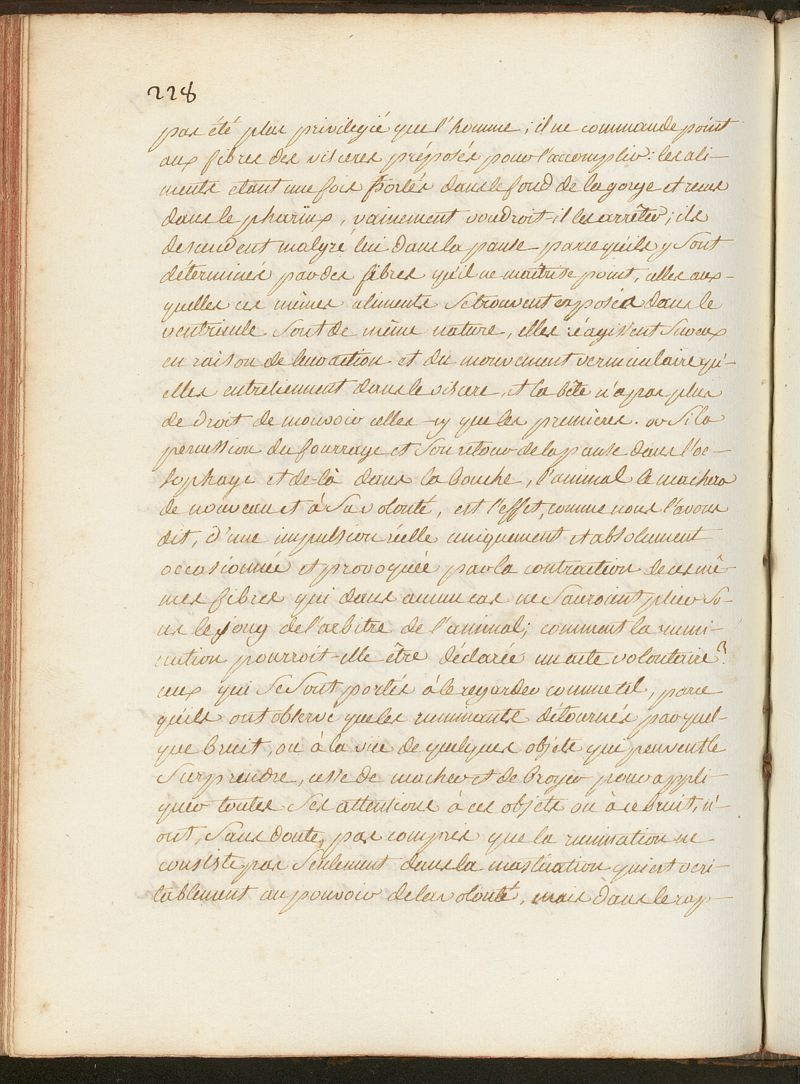 228
pas été plus privilegié que l'homme; il ne commande point
aux fibres des visceres préposés pour l'accomplir: les ali-
ments etant une fois portés dans le fond de la gorge et reçus
dans le pharinx, vainement voudroit-il les arrêter; ils
descendent malgré lui dans la panse parce qu'ils y sont
déterminés par des fibres qu'il ne maitrise point, celles aux-
quelles ces mêmes aliments se trouvent exposés dans le
ventricule sont de même nature, elles réagissent sur eux
en raison de leur action et du mouvement vermiculaire qu'-
elles entretiennent dans le viscere, et la bête n'a pas plus
de droit de mouvoir celles-cy que les premières. or si la
percussion du fourrage et son retour de la panse dans l'oe-
sophage et de là dans la bouche, l'animal le machera
de nouveau et à sa volonté, est l'effet, comme nous l'avons
dit, d'une impulsion réelle uniquement et absolument
occasionnée et provoquée par la contraction de ces mê-
mes fibres qui dans aucun cas ne sauroient plier so-
us le joug de l'arbitre de l'animal; comment la rumi-
nation pourroit-elle être déclarée un acte volontaire?
ceux qui se sont portés à le regarder comme tel, parce
qu'ils ont observé que les ruminants détournés par quel-
que bruit, ou à la vüe de quelques objets qui peuvent le
surprendre, cesse de macher et de broyer pour appli-
quer toutes ses attentions à ces objets ou à ce bruit, n'-
ont, sans doute, pas compris que la rumination ne
consiste pas seulement dans la mastication qui est veri-
tablement au pouvoir de la volonté, mais dans le rap-